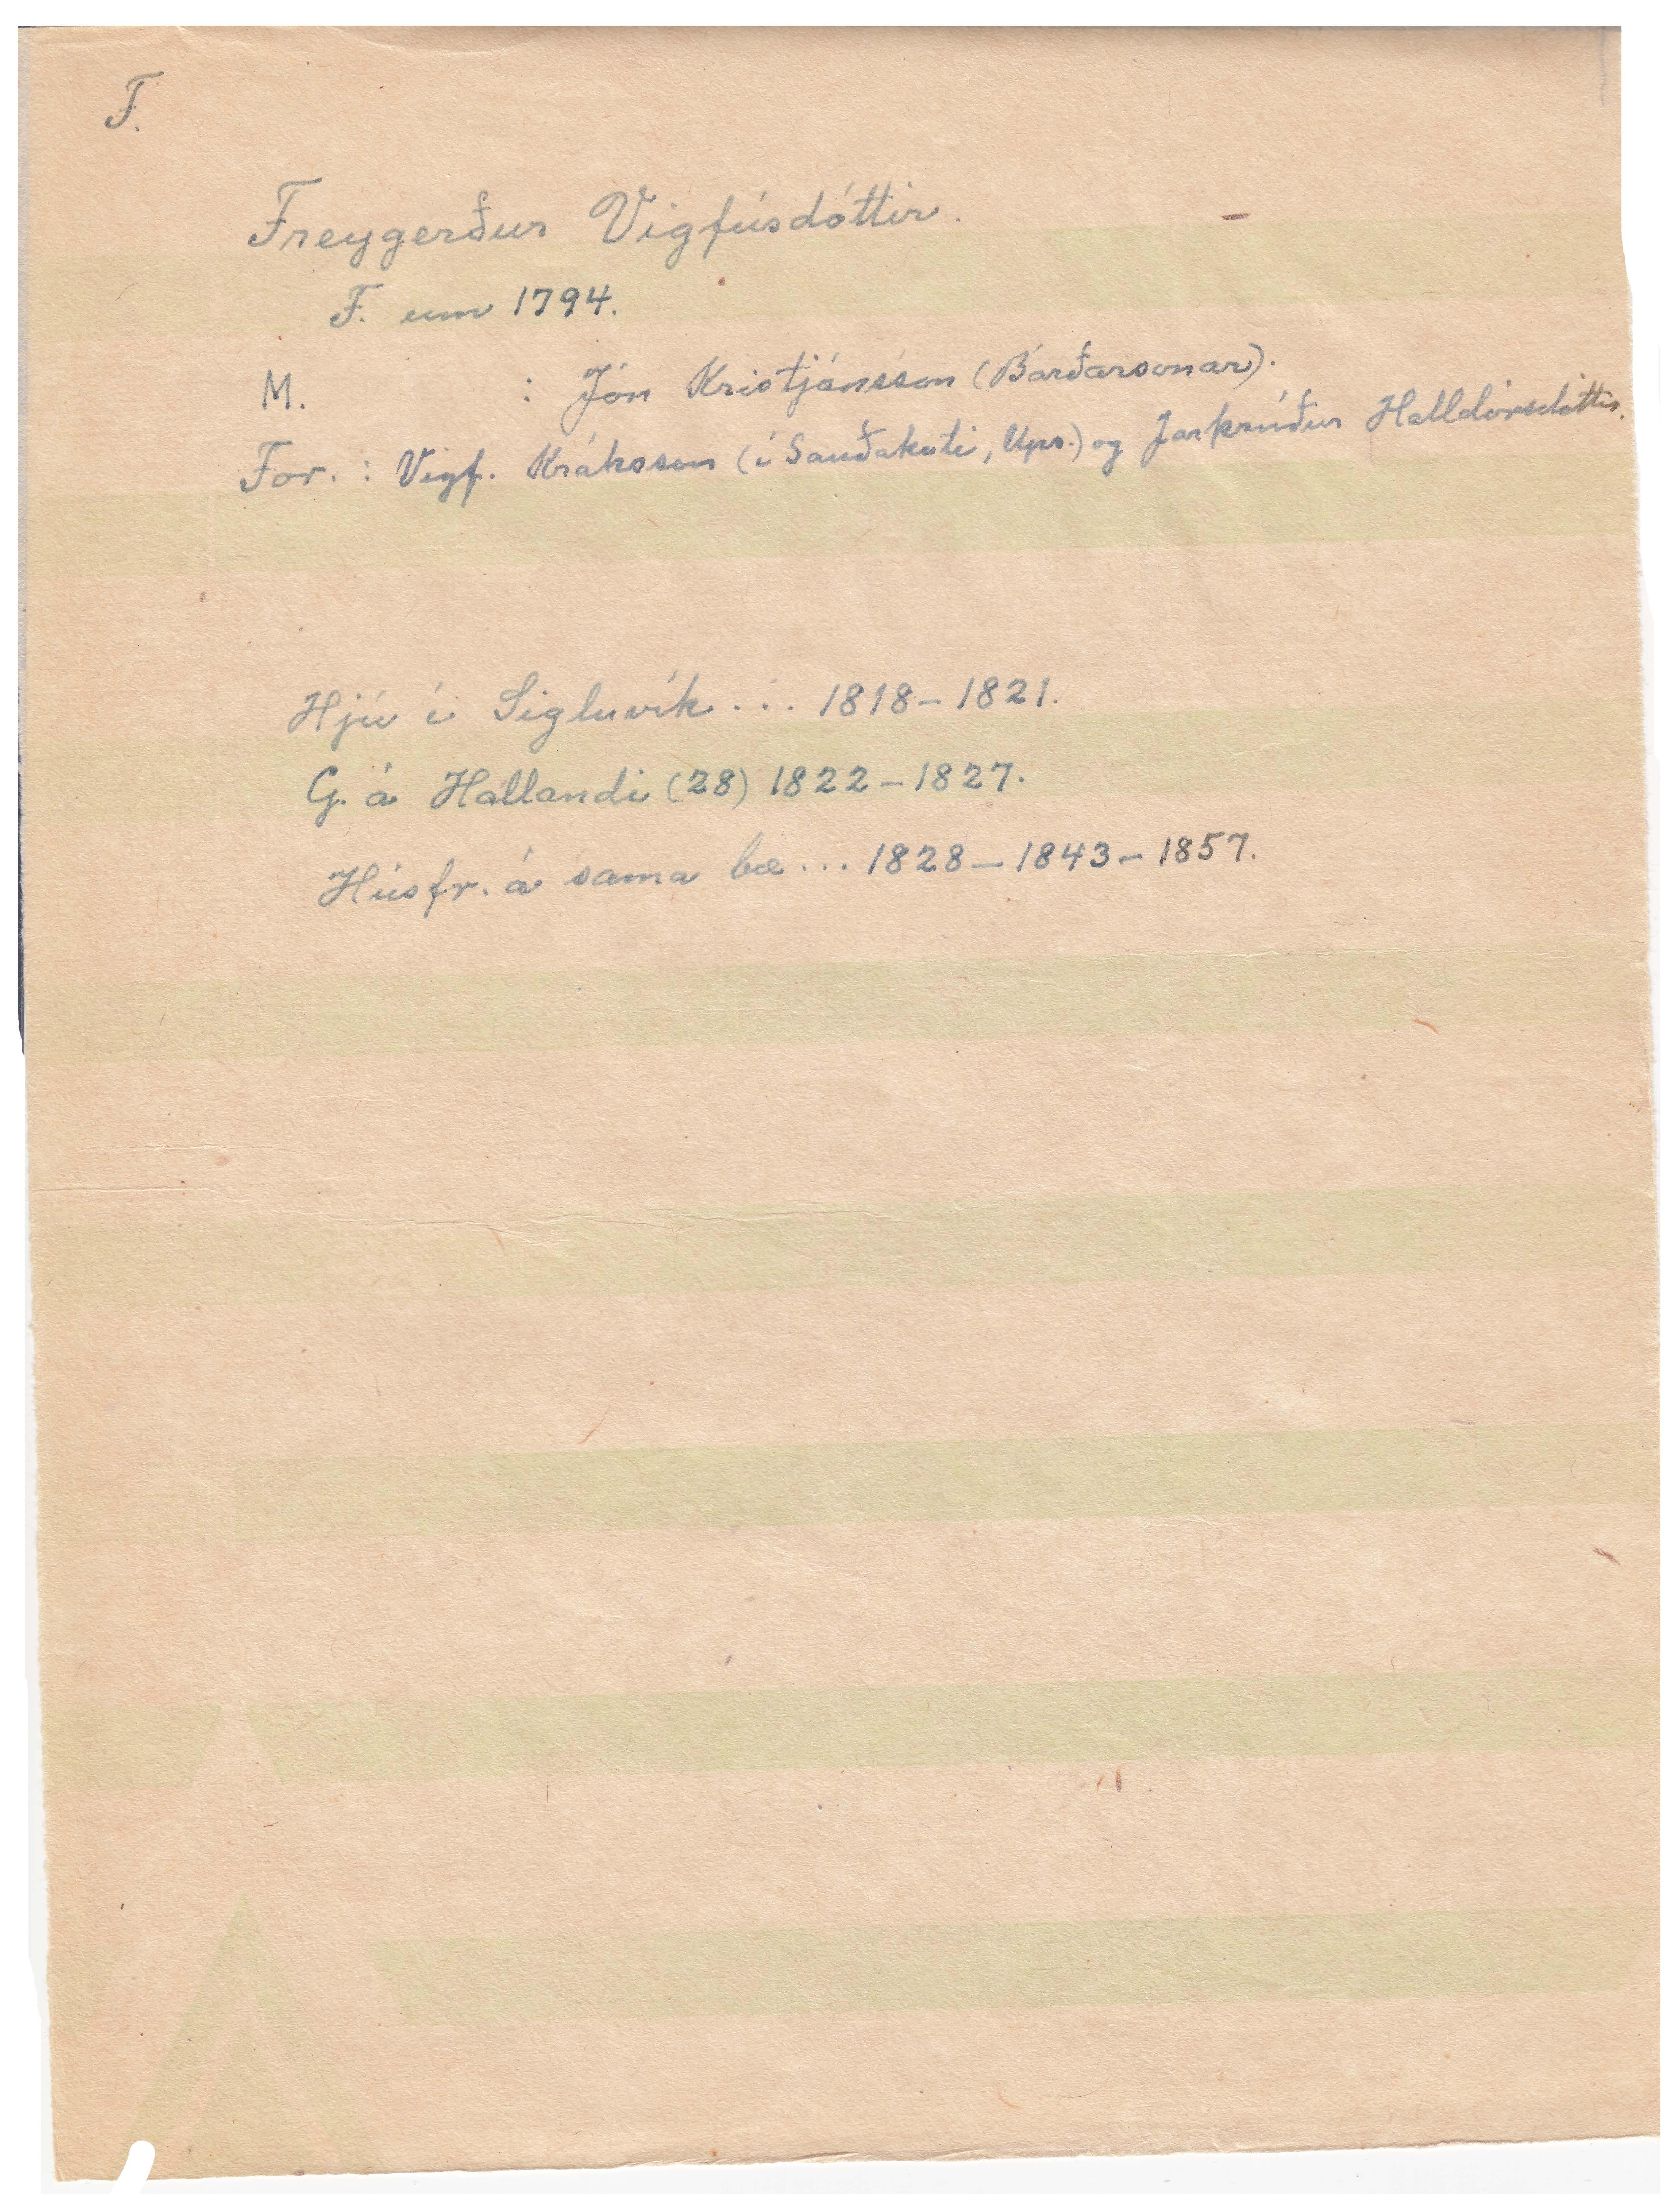 F.
Freygerður Vigfúsdóttir.
F. um 1794.
M. : Jón Kristjánsson (Bárðarsonar).
For. : Vigf. Kráksson (í Sauðakoti, Ups.) og Jarþrúður Halldórsdóttir.
Hjú í Sigluvík ... 1818–1821.
G. á Hallandi (28) 1822–1827.
Húsfr. á sama bæ ... 1828–1843–1857.